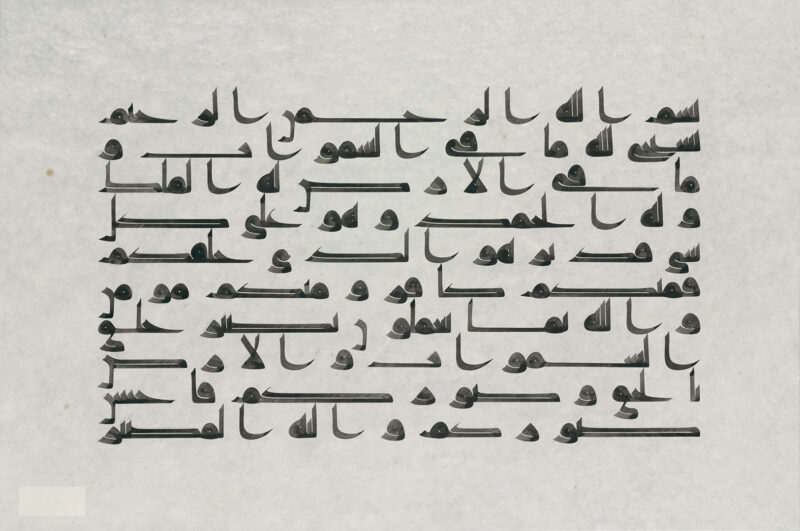 بسم الله الرحمن الرحيم
يسبح لله ما في السموات و
ما في الارض له الملك
و له الحمد و هو على كل
شي قدير هو الذي خلقكم
فمنكم كافر و منكم مومن
و الله بما تعملون بصير خلق
السموات و الارض
بالحق و صوركم فاحسن
صوركم و اليه المصير